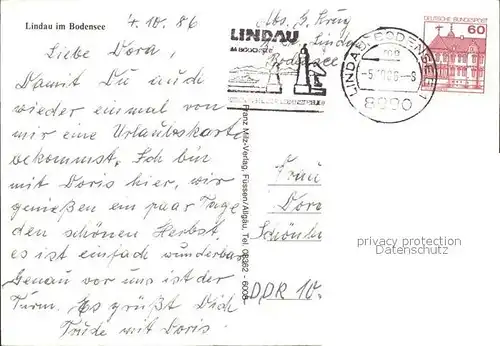 Lindau im Bodensee
4.10.86
Liebe Dora,
Damit Du auch
wieder einmal von
mir eine Urlaubskarte
bekommst. Ich bin
mit Doris hier, wir
genießen ein paar Tage
den schönen Herbst,
es ist einfach wunderbar.
Genau vor uns ist der
Turm. Es grüßt Dich
Trude mit Doris.
Franz Milz-Verlag, Füssen/Allgäu, Tel. 08362-6008
Abs.
Lindau
Bodensee
LINDAU
IM BODENSEE
LINDAU, BODENSEE 1
8990
DEUTSCHE BUNDESPOST
60
Frau
Dora
DDR 10.
privacy protection
Datenschutz